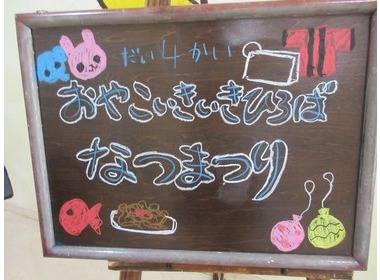 だい4かい
おやこいきいきひろば
なつまつり